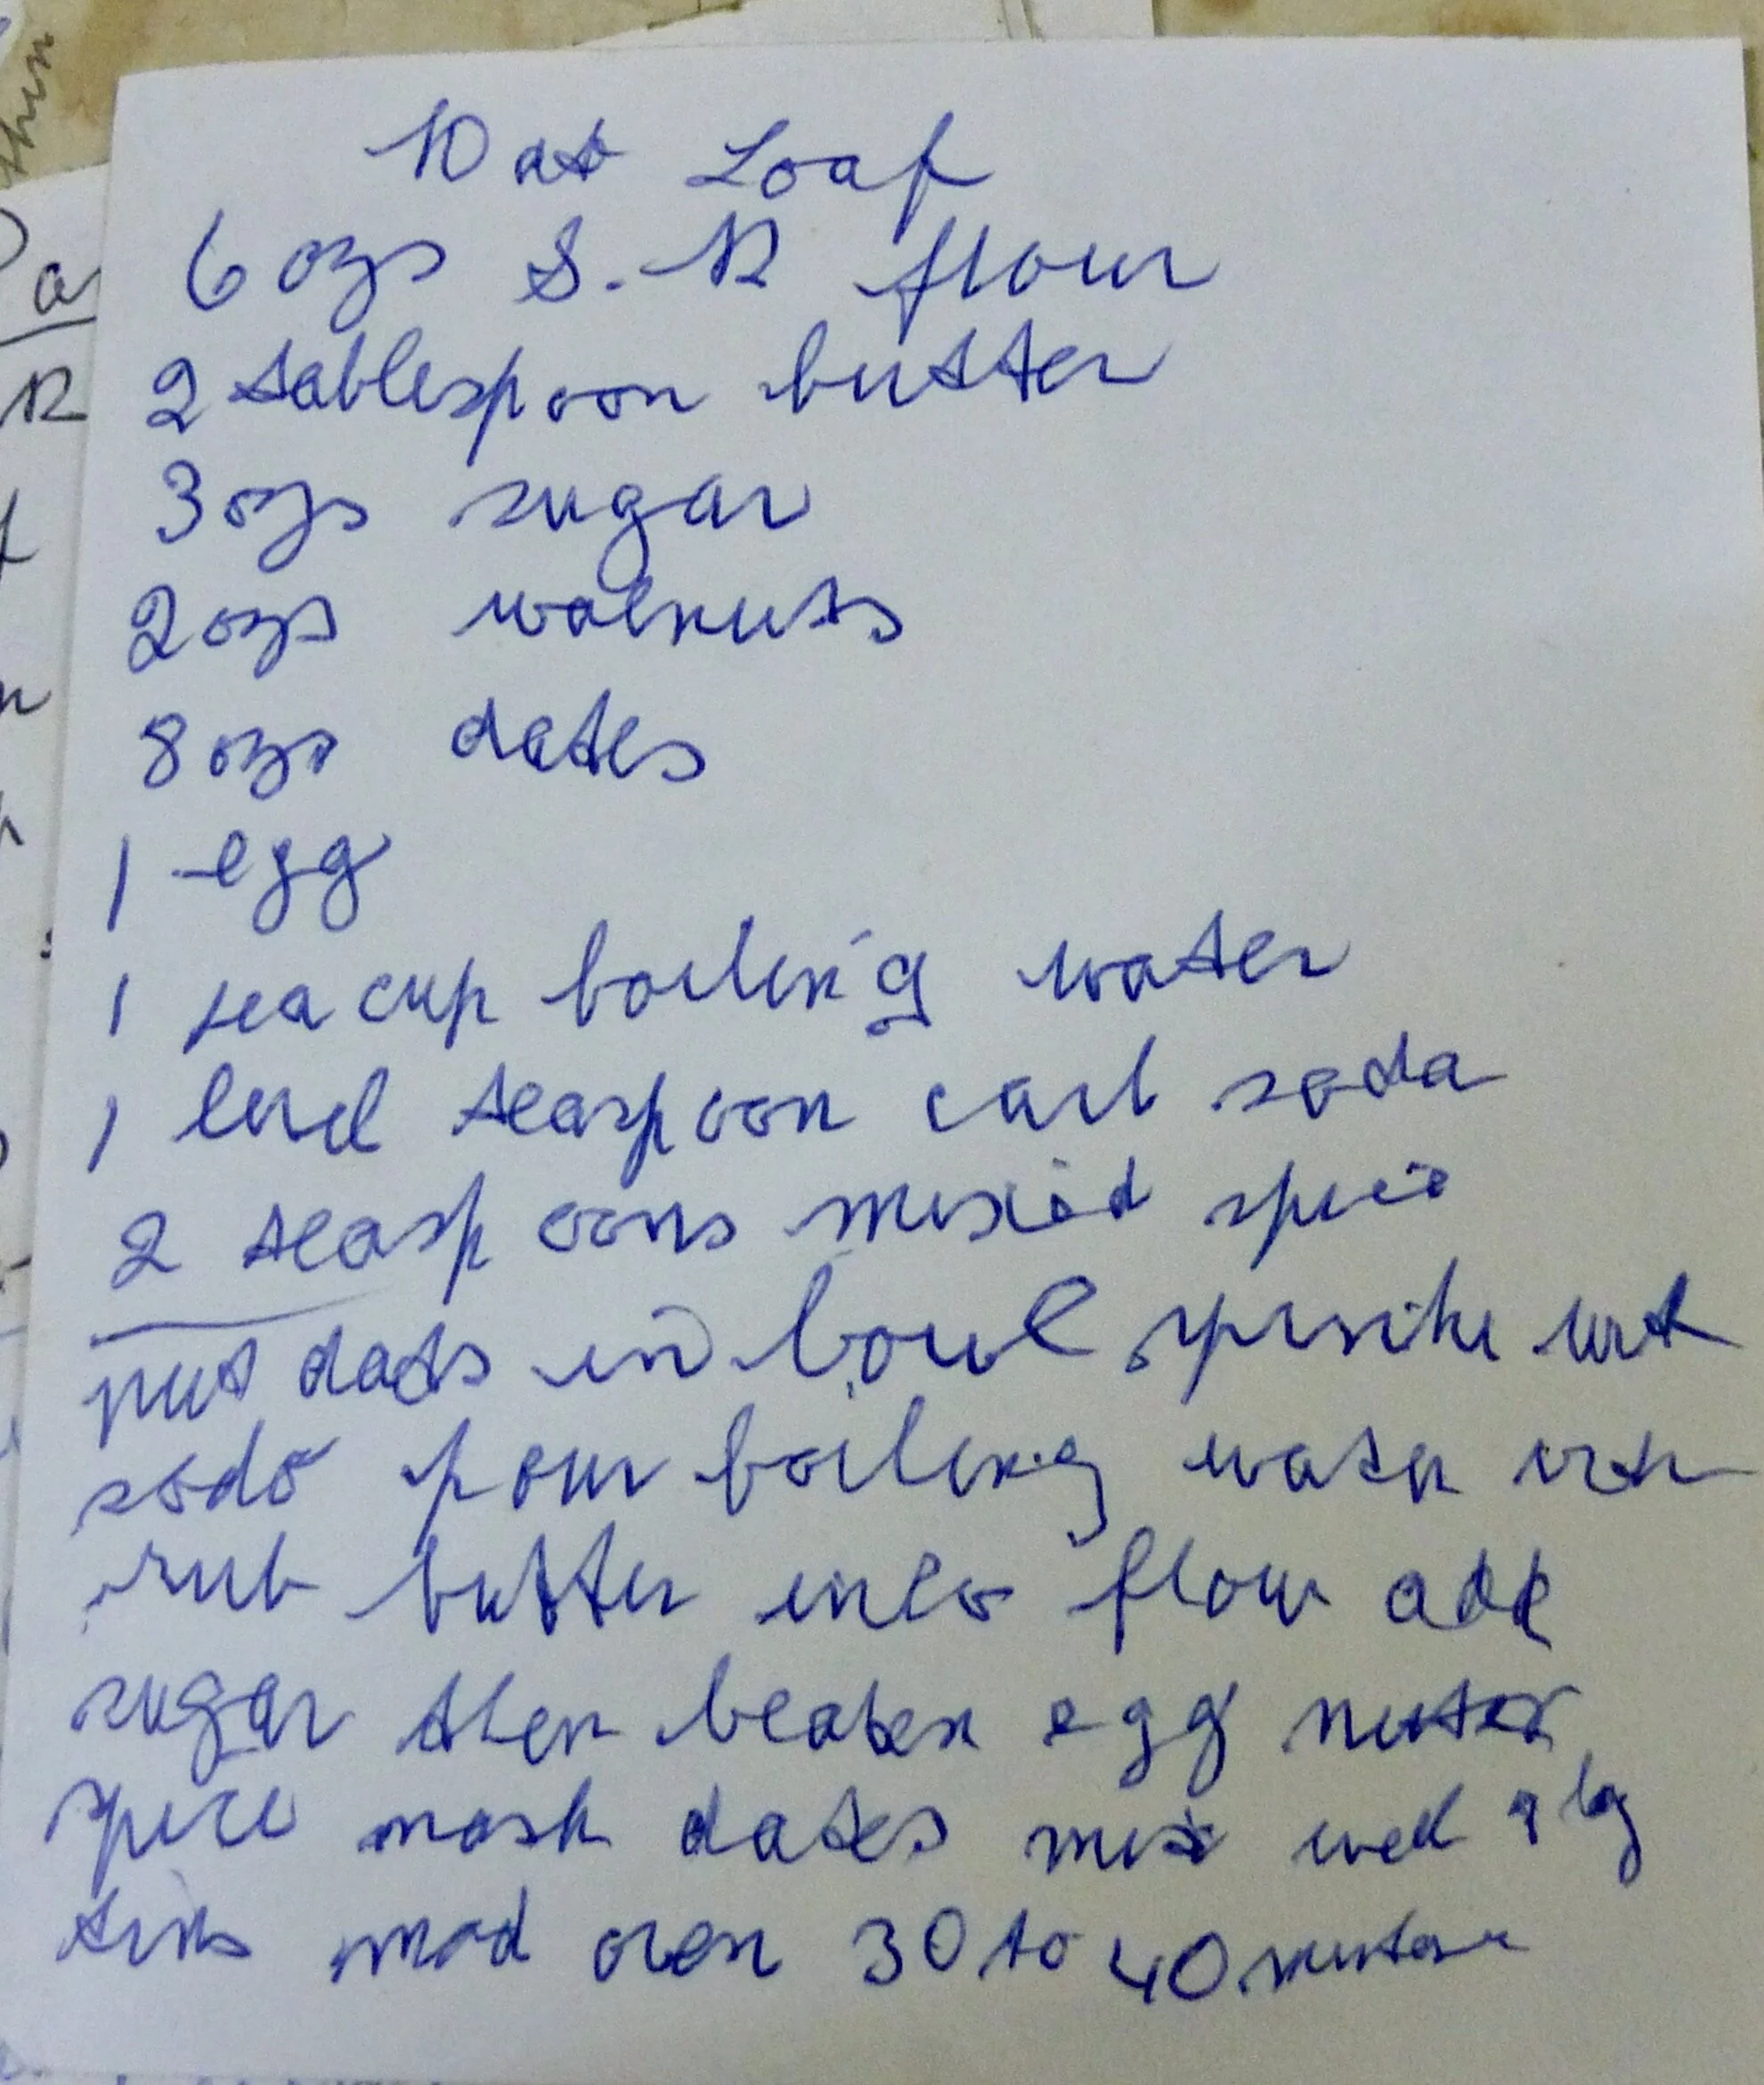 Dat Loaf
6 ozs S.R flour
2 tablespoon butter
3 ozs sugar
2 ozs walnuts
8 ozs dates
1 egg
1 tea cup boiling water
1 level teaspoon carb soda
2 teaspoons mixed spice
put dats in bowl with
soda pour boiling water
rub butter into flour add
sugar then beaten egg
spice mash dates mix well lg
tins mod oven 30 to 40